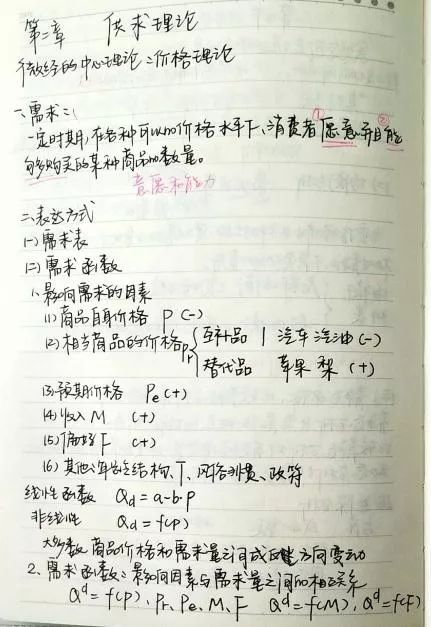 第二章 供求理论
微经的中心理论：价格理论
一、需求：
一定时期，在各种可以的价格水平下，消费者①愿意并且②能
够购买的某种商品的数量。
意愿和能力
二、表达方式
(一) 需求表
(二) 需求函数
1、影响需求的因素
(1) 商品自身价格 P (-)
(2) 相当商品的价格Pr { 互补品 | 汽车 汽油 (-)
替代品 苹果 梨 (+)
(3) 预期价格 Pe (+)
(4) 收入 M (+)
(5) 偏好 F (+)
(6) 其他：年龄结构、T、风俗习惯、政府
线性函数 Qd = a-b·P
非线性 Qd = f(P)
大多数商品价格和需求量之间成反方向变动
2、需求函数：影响因素与需求量之间的相互关系
Q^d = f(P)、Pr、Pe、M、F Q^d = f(M)、Q^d = f(F)